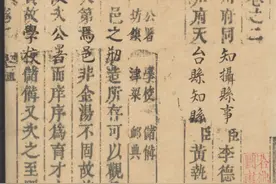 卷之二
府同知攝縣事臣李德
府天台縣知縣臣黃執
公署 學校 儲備
坊集 津梁 郵典
邑之制造所存可以觀
次第焉邑非金湯不固故
次公署而庠序爲育才
故學校儲備又次之至